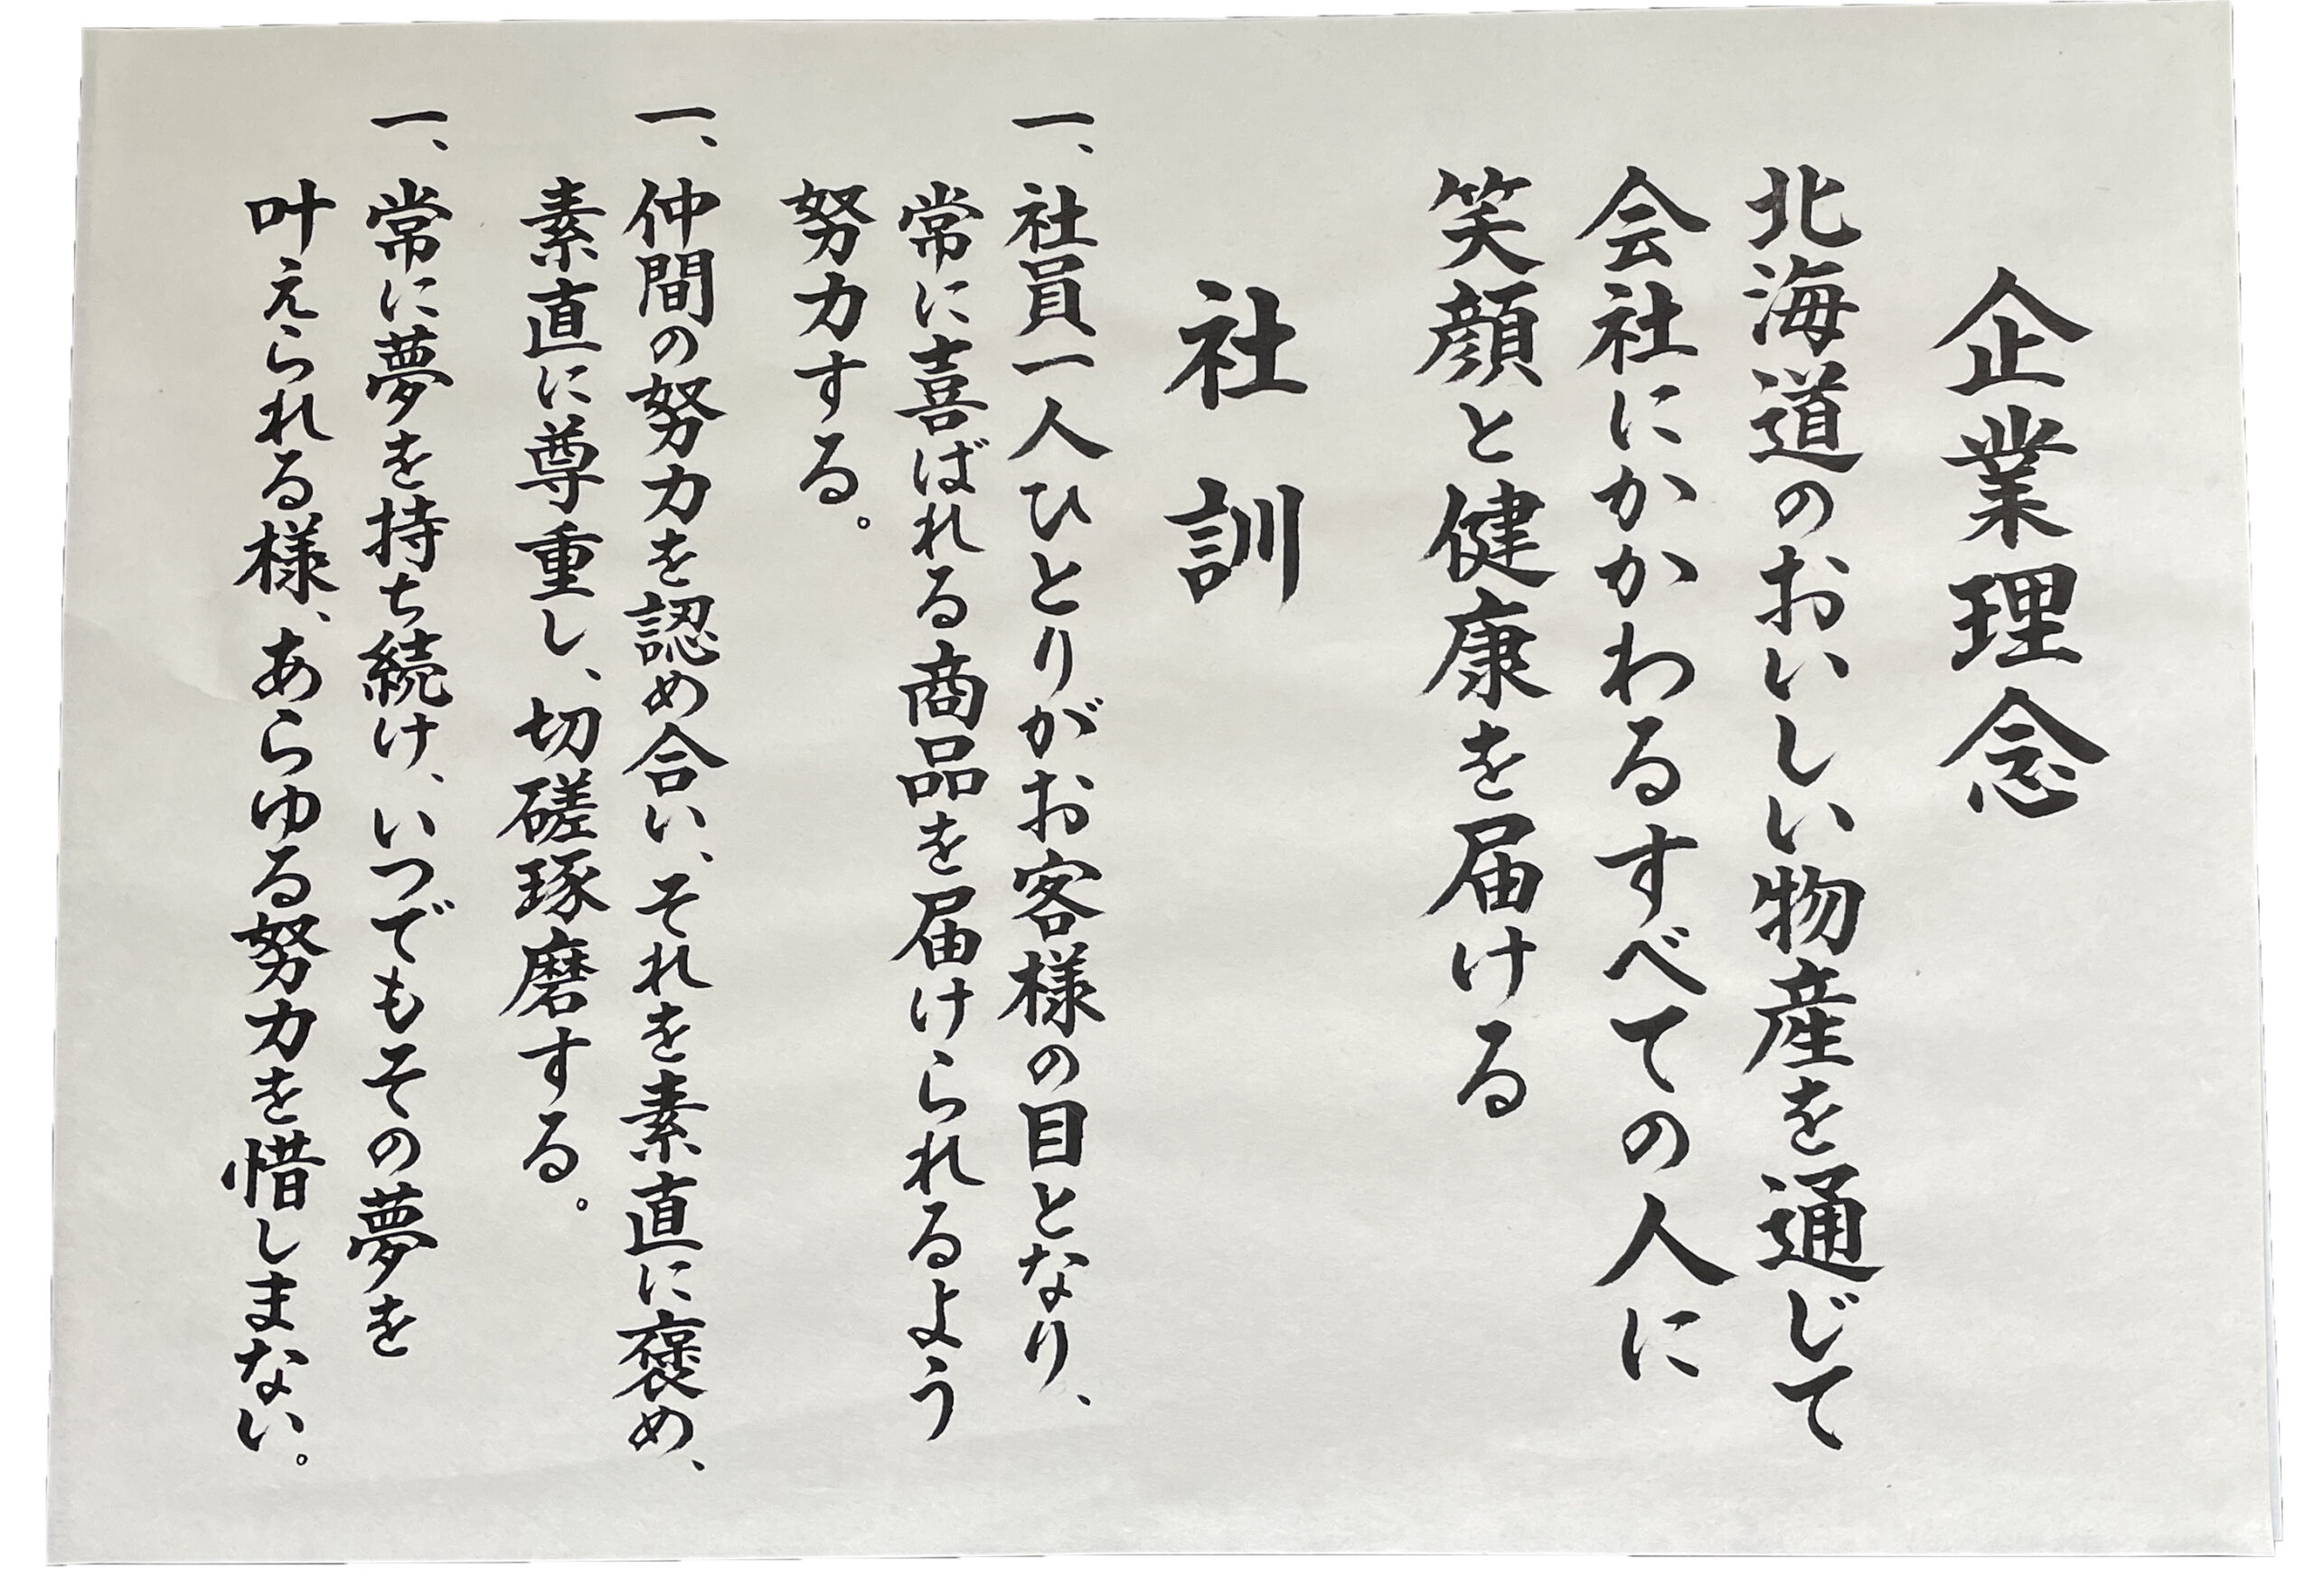 企業理念
北海道のおいしい物産を通じて
会社にかかわるすべての人に
笑顔と健康を届ける
社訓
一、社員一人ひとりがお客様の目となり、
常に喜ばれる商品を届けられるよう
努力する。
一、仲間の努力を認め合い、それを素直に褒め、
素直に尊重し、切磋琢磨する。
一、常に夢を持ち続け、いつでもその夢を
叶えられる様、あらゆる努力を惜しまない。